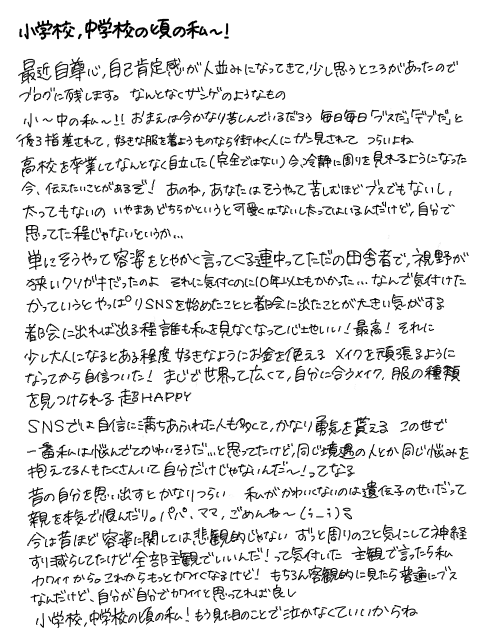 小学校,中学校の頃の私〜!
最近自尊心,自己肯定感が人並みになってきて,少し思うところがあったので
ブログに残します。 なんとなくザンゲのようなもの
小〜中の私〜!! おまえは今かなり苦しんでいるだろう 毎日毎日「ブスだ」「デブだ」と
後ろ指差されて, 好きな服を着ようものなら街ゆく人にガン見されて つらいよね
高校を卒業してなんとなく自立した(完全ではない)今,冷静に周りを見れるようになった
今、伝えたいことがあるぞ! あのね, あなたはそうやって苦しむほどブスでもないし,
太ってもないの いやまあどちらかというと可愛くはないし太ってはいるんだけど,自分で
思ってた程じゃないというか…
単にそうやって容姿をとやかく言ってくる連中ってただの田舎者で,視野が
狭いクソガキだったのよ それに気付くのに10年以上もかかった… なんで気付けた
かっていうとやっぱりSNSを始めたことと都会に出たことが大きい気がする
都会に出れば出る程誰も私を見なくなって心地いい!最高! それに
少し大人になるとある程度好きなようにお金を使える メイクを頑張るように
なってから自信ついた! まじで世界って広くて,自分に合うメイク, 服の種類
を見つけられる 超HAPPY
SNSでは自信に満ちあふれた人も多くて,かなり勇気を貰える この世で
一番私は悩んでてかわいそうだ…と思ってたけど,同じ境遇の人とか同じ悩みを
抱えてる人もたくさんいて自分だけじゃないんだ〜!ってなる
昔の自分を思い出すとかなりつらい 私がかわいくないのは遺伝子のせいだって
親を本気で恨んだり。パパ、ママ, ごめんね〜(;_;)
今は昔ほど容姿に関しては悲観的じゃない ずっと周りのこと気にして神経
すり減らしてたけど全部主観でいいんだ!って気付いた 主観で言ったら私
カワイイからね これからもっとカワイくなるけど! もちろん客観的に見たら普通にブス
なんだけど、自分が自分でカワイイと思ってれば良し
小学校,中学校の頃の私! もう見た目のことで泣かなくていいからね